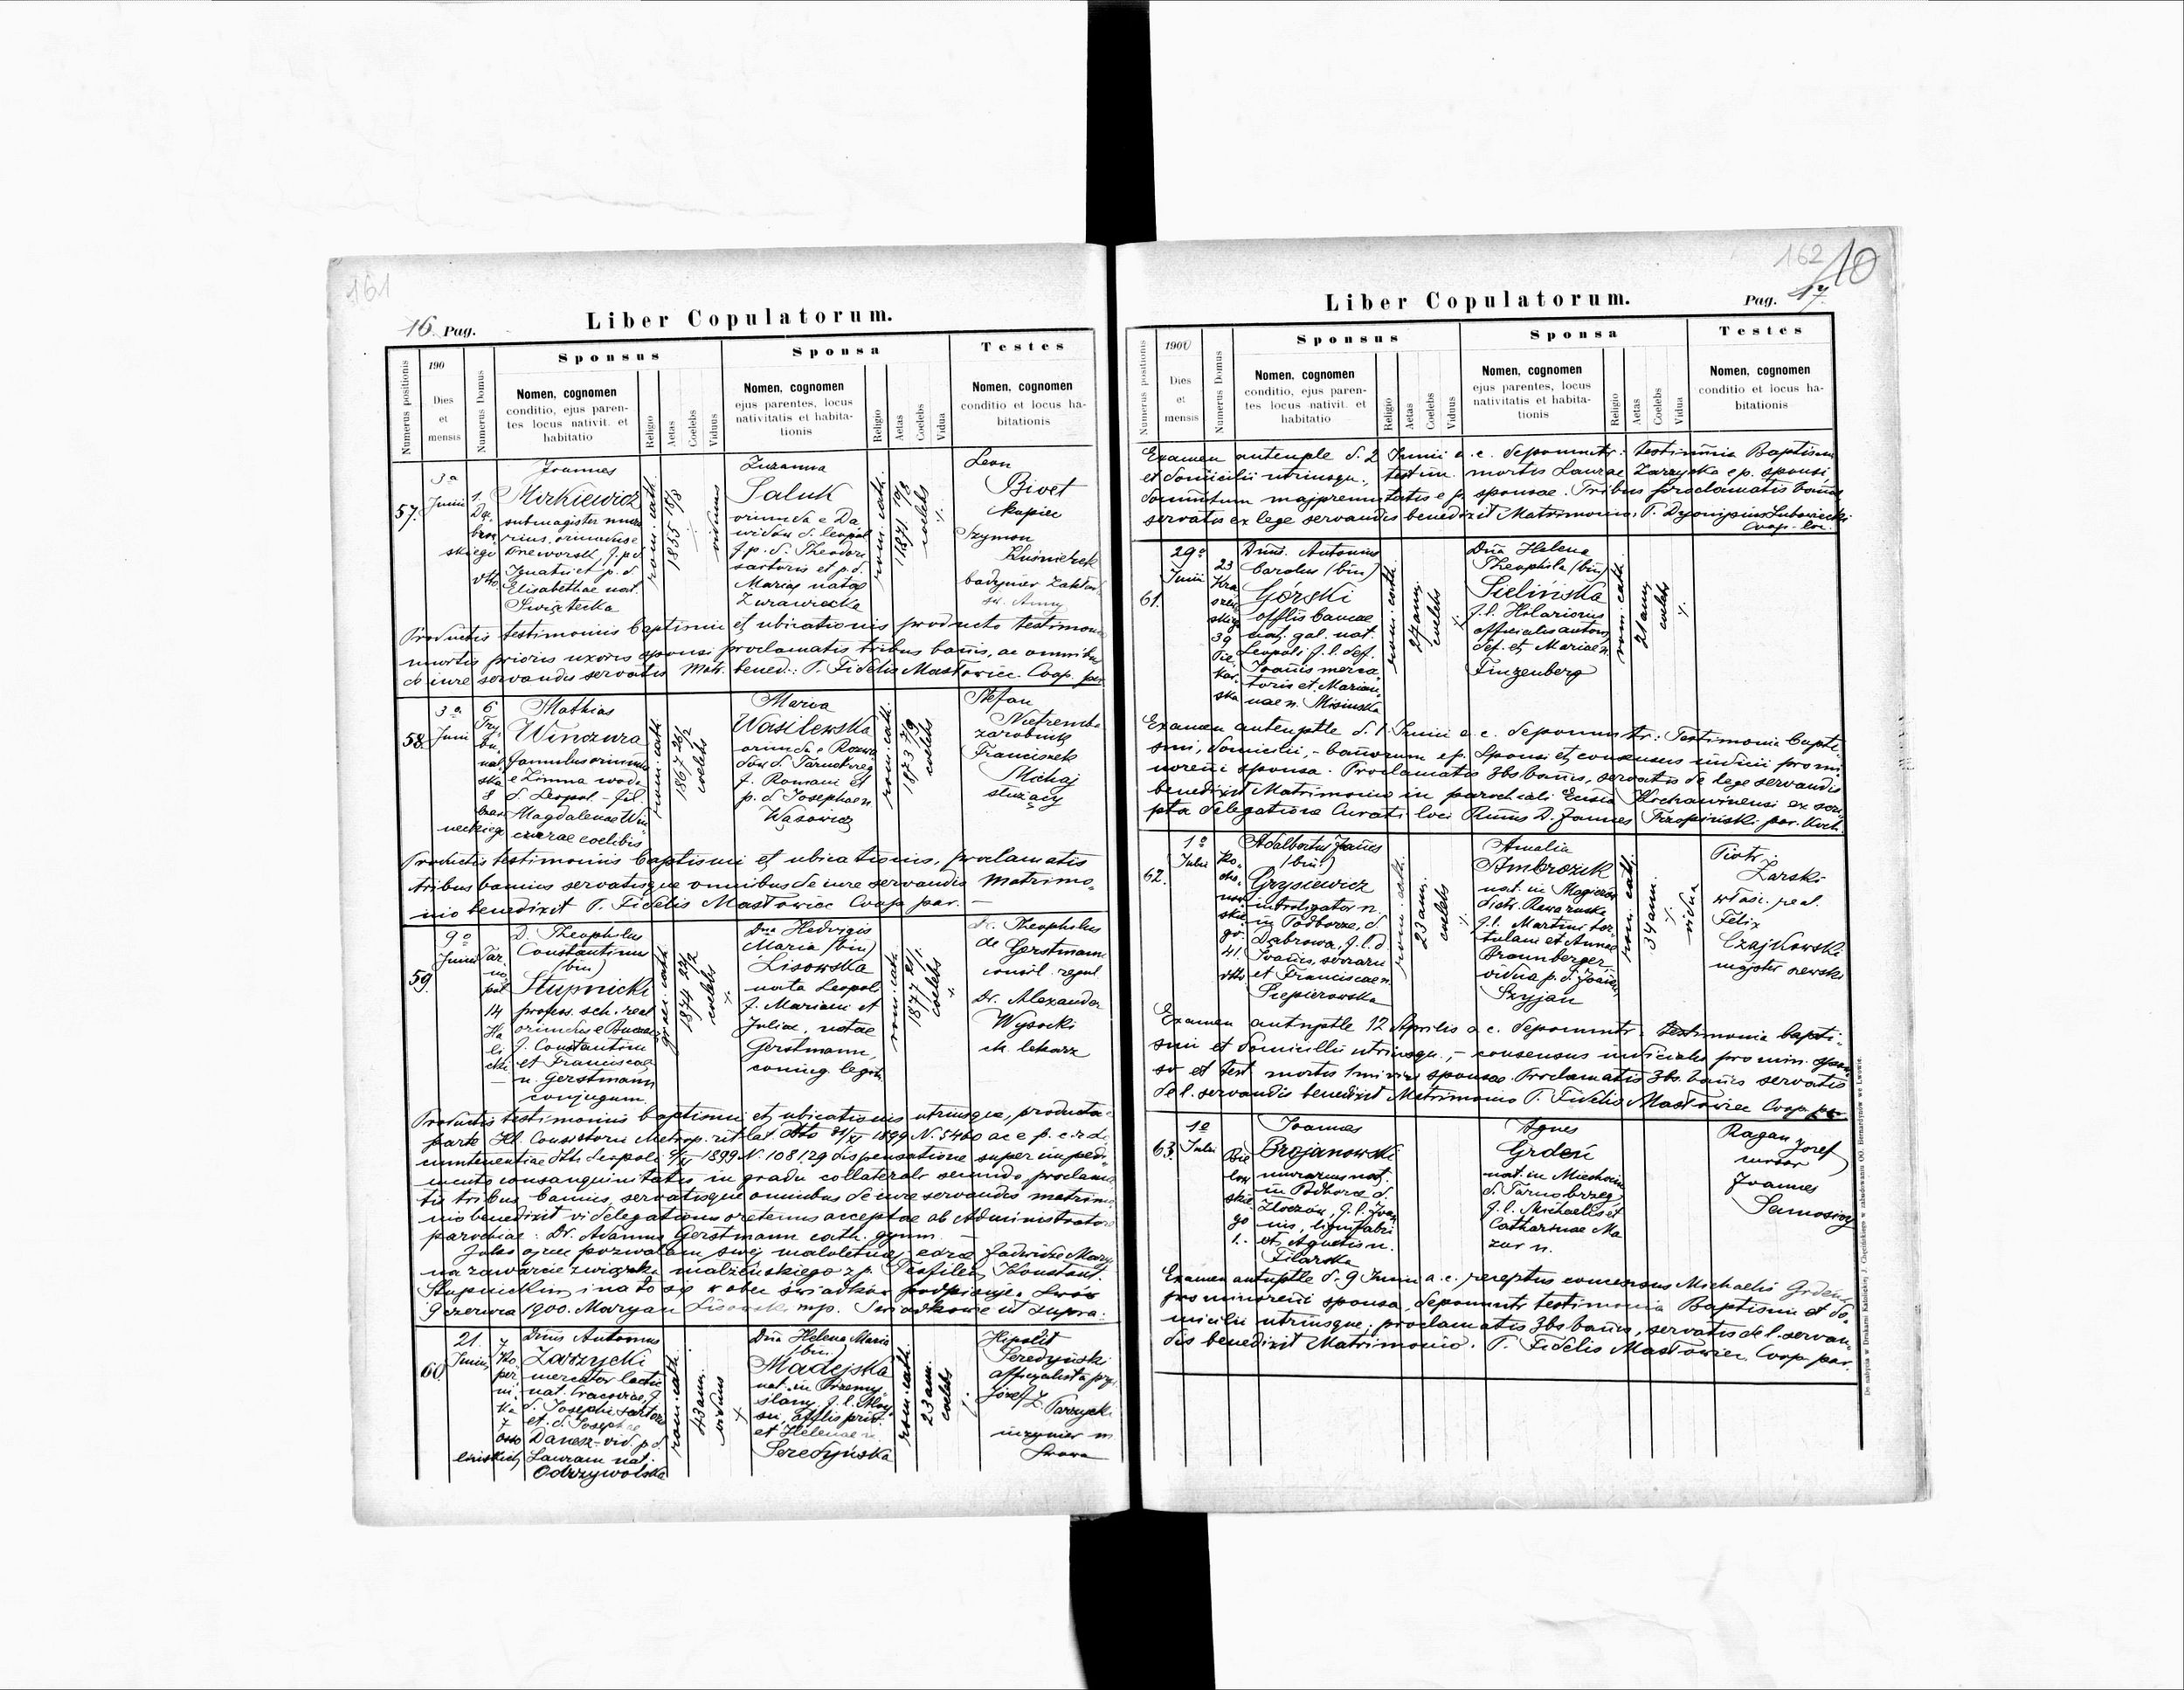 161
16. Pag.
Liber Copulatorum.
Numerus positionis
190
Dies
et
mensis
Numerus Domus
Sponsus
Nomen, cognomen
conditio, ejus paren-
tes locus nativit. et
habitatio
Religio
Aetas
Coelebs
Viduus
Sponsa
Nomen, cognomen
ejus parentes, locus
nativitatis et habita-
tionis
Religio
Aetas
Coelebs
Vidua
Testes
Nomen, cognomen
conditio et locus ha-
bitationis
57.
3a
Junii
Joannes
Mirkiewicz
submagister
oriundus e
Przeworsk f. p. d.
Ignatii et p. d.
Elisabethae nat.
Swiątecka
rom. cath.
1855
viduus
Zuzanna
Saluk
oriunda e Da
widów d. Leopol
f. p. d. Theodori
sartoris et p. d.
Mariae natae
Żurawiecka
rom. cath.
1871
coelebs
Leon
Bivet
kupiec
Szymon
Kuśmierek
św. Anny
Productis testimoniis baptismi et ubicationis producto testimon
mortis prioris uxoris sponsi proclamatis tribus bannis, ac omnibus
de iure servandis servatis Matr. bened.: P. Fidelis Mastowiec Coop. par
58.
3a
Junii
6
Mathias
Winczura
famulus oriundus
e Zimna woda
d. Leopol. fil.
Magdalenae Win
czurae coelibis
rom. cath.
1867
coelebs
Maria
Wasilewska
oriunda e Rozwa
dów d. Tarnobrzeg
f. Romani et
p. d. Josephae n.
Wąsowicz
rom. cath.
1873
coelebs
Stefan
Nietremba
zarobnik
Franciszek
Michaj
służący
Productis testimoniis baptismi et ubicationis, proclamatis
tribus bannis servatisque omnibus de iure servandis Matrimo-
nio benedixit P. Fidelis Mastowiec Coop. par. —
59.
9o
Junii
14
D. Theophilus
Constantinus
(bin)
Stupnicki
profess. sch. real
oriundus e
f. Constantini
et Franciscae
n. Gerstmann
conjugum.
graec. cath.
1874
coelebs
Dna Hedvigis
Maria (bin)
Lisowska
nata Leopol
f. Mariani et
Juliae, natae
Gerstmann,
coniug. legit.
rom. cath.
1877
coelebs
Dr. Theophilus
de Gerstmann
consil. regal
Dr. Alexander
Wysocki
ck. lekarz
Productis testimoniis baptismi et ubicationis utriusque, producta
parte Consistorii Metrop. rit. lat. dtto 31/XI 1899 N. 5460 ac e p. c. r. d.
Leopoli 1899 N. 108129 dispensatione super impedi
mento consanguinitatis in gradu collaterali secundo proclama
tis tribus bannis, servatisque omnibus de iure servandis matrimo
nio benedixit vi delegationis oretenus acceptae ab Administratore
parochiae: Dr. Adamus Gerstmann cath. gymn. —
Jako ojciec pozwalam swej małoletniej córce Jadwidze Maryi
na zawarcie związku małżeńskiego z p. Teofilem Konstant.
Stupnickim, i na to się wobec świadków podpisuję. Lwów
9 czerwca 1900. Maryan Lisowski mp. Świadkowie ut supra.
60
21.
Junii
Dnus Antonius
Zarzycki
mercator
nat. Cracoviae, f.
d. Josephi
et d. Josephae
Danesz - vid p. d.
Lauram nat.
Odrzywolska
rom. cath.
43 ann.
viduus
Dna Helena Maria
(bin.)
Madejska
nat. in Przemy-
ślany, f. l. Aloy-
sii, offlis priv.
et Helenae n.
Seredyńska
rom. cath.
23 ann.
coelebs
Hipolit
Seredyński
officyalista
Józef
Zarzycki
inżynier
Lwowa
162
10
Liber Copulatorum.
Pag. 17.
Numerus positionis
1900
Dies
et
mensis
Numerus Domus
Sponsus
Nomen, cognomen
conditio, ejus paren-
tes locus nativit. et
habitatio
Religio
Aetas
Coelebs
Viduus
Sponsa
Nomen, cognomen
ejus parentes, locus
nativitatis et habita-
tionis
Religio
Aetas
Coelebs
Vidua
Testes
Nomen, cognomen
conditio et locus ha-
bitationis
Examen antenuple d. 2 Junii a. c. deponuntr: testimonia Baptismi
et domicilii utriusqu., testim. mortis Laurae Zarzycka e p. sponsi
e p. sponsae. Tribus proclamatis bannis
servatis ex lege servandis benedixit Matrimonio: P. Dyonisius Lubowiecki
Coop. loc.
61.
29o
Junii
23
39
Dnus. Antonius
Carolus (bin)
Górski
offlis bancae
nat. gal. nat.
Leopoli f. l. def.
Joannis merca
toris et Marian-
nae n. Misinska
rom. cath.
27 ann.
coelebs
Dna Helena
Theophila (bin)
Sielińska
f. l. Hilarionis
officialis
def. et Mariae n.
Finzenberg
rom. cath.
21 ann.
coelebs
Examen antenuptle d. 1 Junii a. c. deponuntr: Testimonia bapti-
smi, domicilii, - bannorum e p. Sponsi et consensus iudicii pro mi-
norenni sponsa. Proclamatis 3bs bannis, servatis de lege servandis
benedixit Matrimonio in parochiali Ecclsia Kochawinensi ex scri-
pta delegatione Curati loci Rmus D. Joannes Trzopiński par. Koch.
62.
1o
Julii
41
Adalbertus Joannes
(bin.)
Grysiewicz
introligator n.
in Podborze, d.
Dąbrowa, f. l. d.
Joannis,
et Franciscae n.
Piepierowska
rom. cath.
23 ann.
coelebs
Amalia
Ambrozik
nat. in Magierów
distr. Rawaruska
f. l. Martini hor-
tulani et Annae
Braunberger,
vidua p. d. Joann.
Szyjan
rom. cath.
34 ann.
vidua
Piotr
Żarski
właśc. real.
Felix
Czajkowski
majster szewski
Examen antnptle 12 Aprilis a c. deponuntr: testimonia bapti-
smi et domicilii utriusqu., - consensus iudicialis pro min. spon-
so et test. mortis 1mi viri sponsae. Proclamatis 3bs. bannis servatis
de l. servandis benedixit Matrimonio P. Fidelis Mastowiec Coop par
63.
1o
Julii
1.
Joannes
Brojanowski
murarius nat.
in Podhorce d.
Złoczów, f. l. Joan
nis, lignifabri
et Agnetis n.
Filarska
Agnes
Grdeń
nat. in Miechocin
d. Tarnobrzeg
f. l. Michaelis et
Catharinae Ma
zur n.
Ragan Jozef
Joannes
Samosiej
Examen antnptle d. 9 Junii a. c. receptus consensus Michaelis Grdeń
pro minorenni sponsa, deponuntr testimonia Baptismi et do-
micilii utriusque; proclamatis 3bs bannis, servatis de l. servan-
dis benedixit Matrimonio. P. Fidelis Mastowiec, Coop par.
De nabycia w Drukarni Katolickiej J. Chęcińskiego w zabudowaniu OO. Bernardynów we Lwowie.